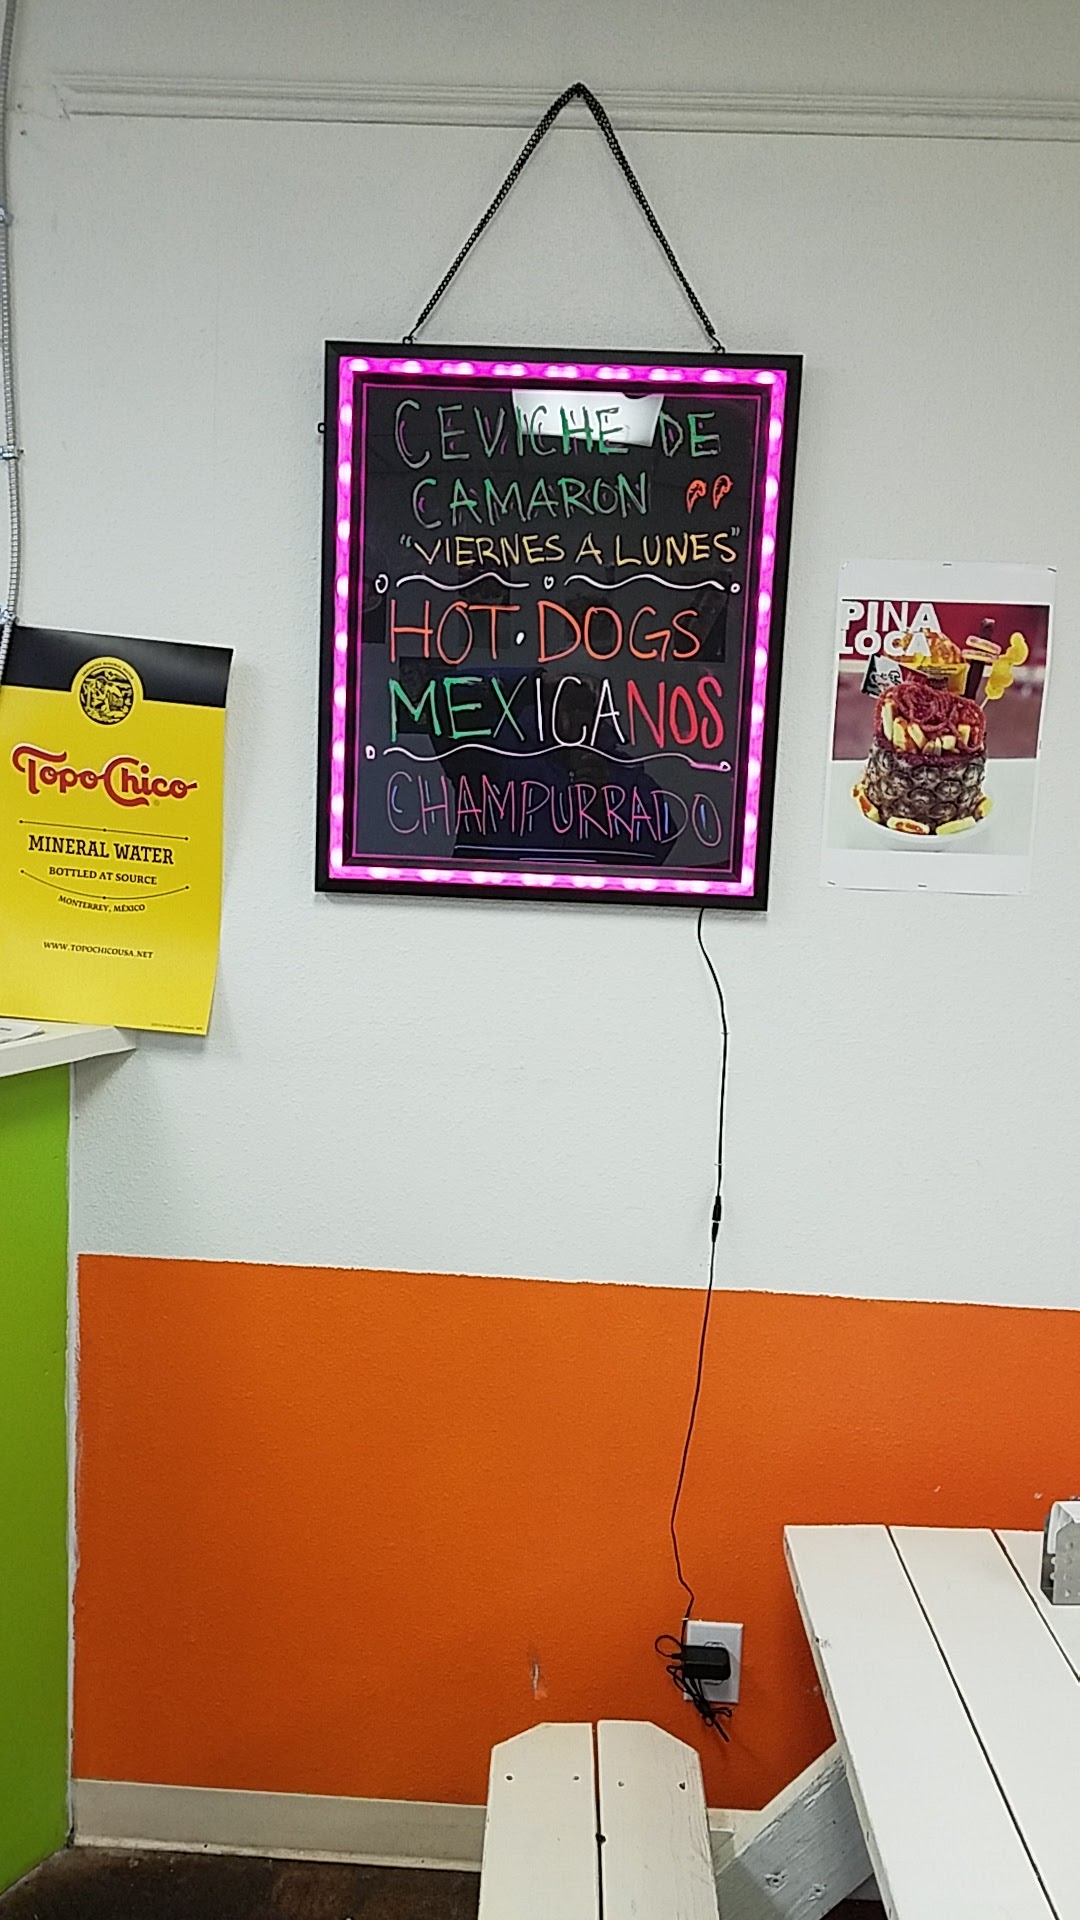 CEVICHE DE
CAMARON
"VIERNES A LUNES"
HOT·DOGS
MEXICANOS
CHAMPURRADO
Topo Chico
MINERAL WATER
BOTTLED AT SOURCE
MONTERREY, MÉXICO
WWW.TOPOCHICOUSA.NET
PINA
LOCA